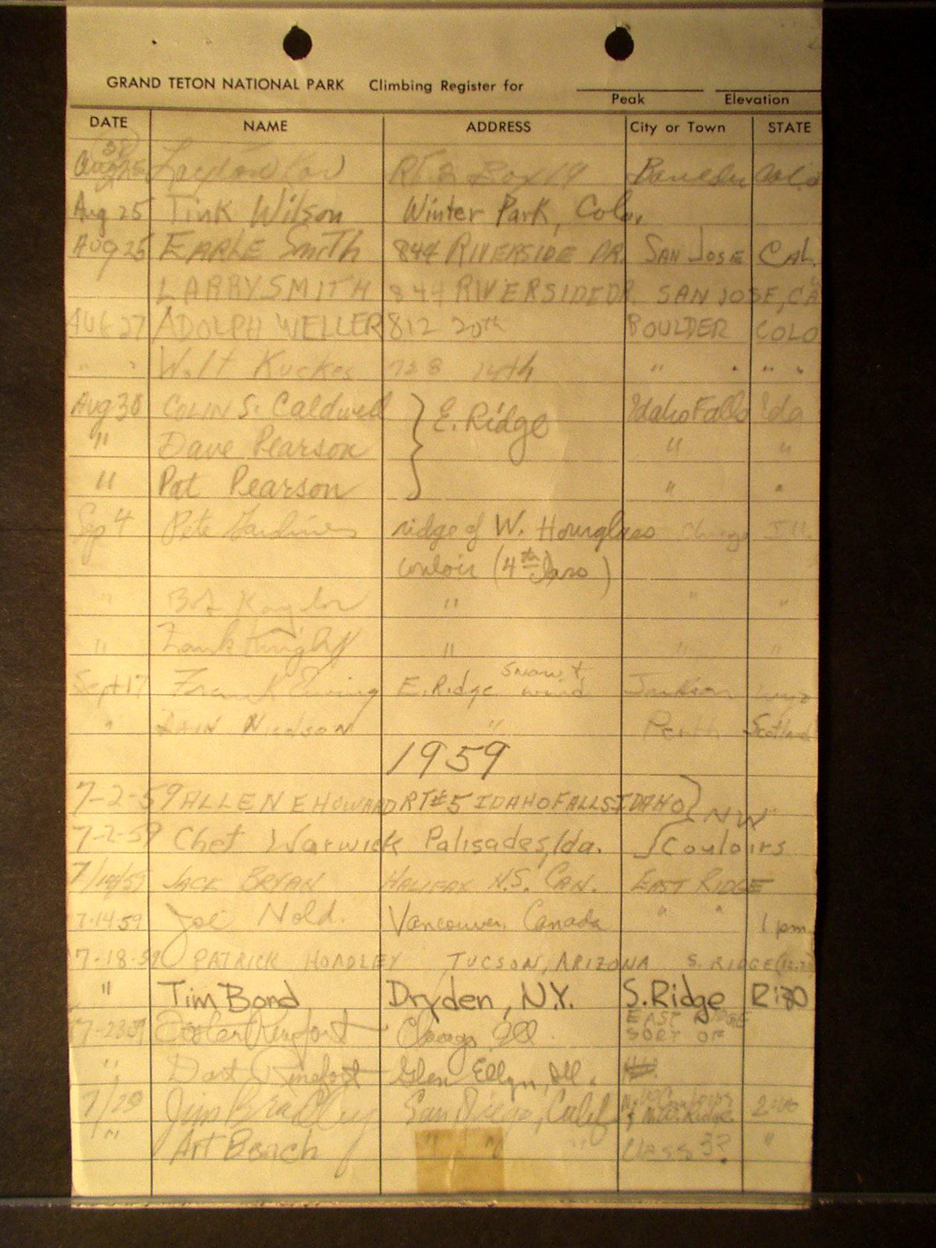 GRAND TETON NATIONAL PARK Climbing Register for
Peak Elevation
DATE NAME ADDRESS City or Town STATE
58
Aug 25 Rt. 3 Box 19 Colo
Aug 25 Tink Wilson Winter Park, Colo.
Aug 25 EARLE SmiTH 844 RIVERSIDE DR. SAN JOSE CAL.
LARRY SMITH 844 RIVERSIDE DR. SAN JOSE, CA
AUG 27 ADOLPH WELLER 812 20th BOULDER COLO
" " Walt Kuckes 728 14th " " " "
Aug 30 COLIN S. Caldwell } E. Ridge Idaho Falls Ida
" Dave Pearson " "
" Pat Pearson " "
Sep 4 Pete ridge of W. Hourglass Chicago Ill.
couloir (4th )
" Bob Kaylor " "
" Knight " " "
Sept 17 Frank Ewing E. Ridge snow & wind Jackson Wyo
" " Perth Scotland
1959
7-2-59 ALLEN E HOWARD RT#5 IDAHO FALLS IDAHO } NW
7-2-59 Chet Warwick Palisades, Ida. Couloirs
7/14/59 JACK BRYAN HALIFAX N.S. CAN. EAST RIDGE
7-14-59 Joe Nold. Vancouver, Canada " " 1 pm.
7-18-59 PATRICK HOADLEY TUCSON, ARIZONA S. RIDGE
" Tim Bond Dryden, N.Y. S. Ridge
EAST RIDGE
7-23-59 Chicago Ill. SORT OF
" Glen Ellyn, Ill.
7/29 Jim Bradley San Diego, Calif N.W. Couloirs & Ridge 2:00
" Art Beach " " " Class 3? "